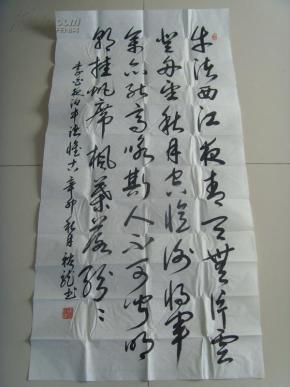 牛渚西江夜青天无片云
登舟望秋月空忆谢将军
余亦能高咏斯人不可闻明
朝挂帆席枫叶落纷〻
李白夜泊牛渚怀古辛卯秋月
书